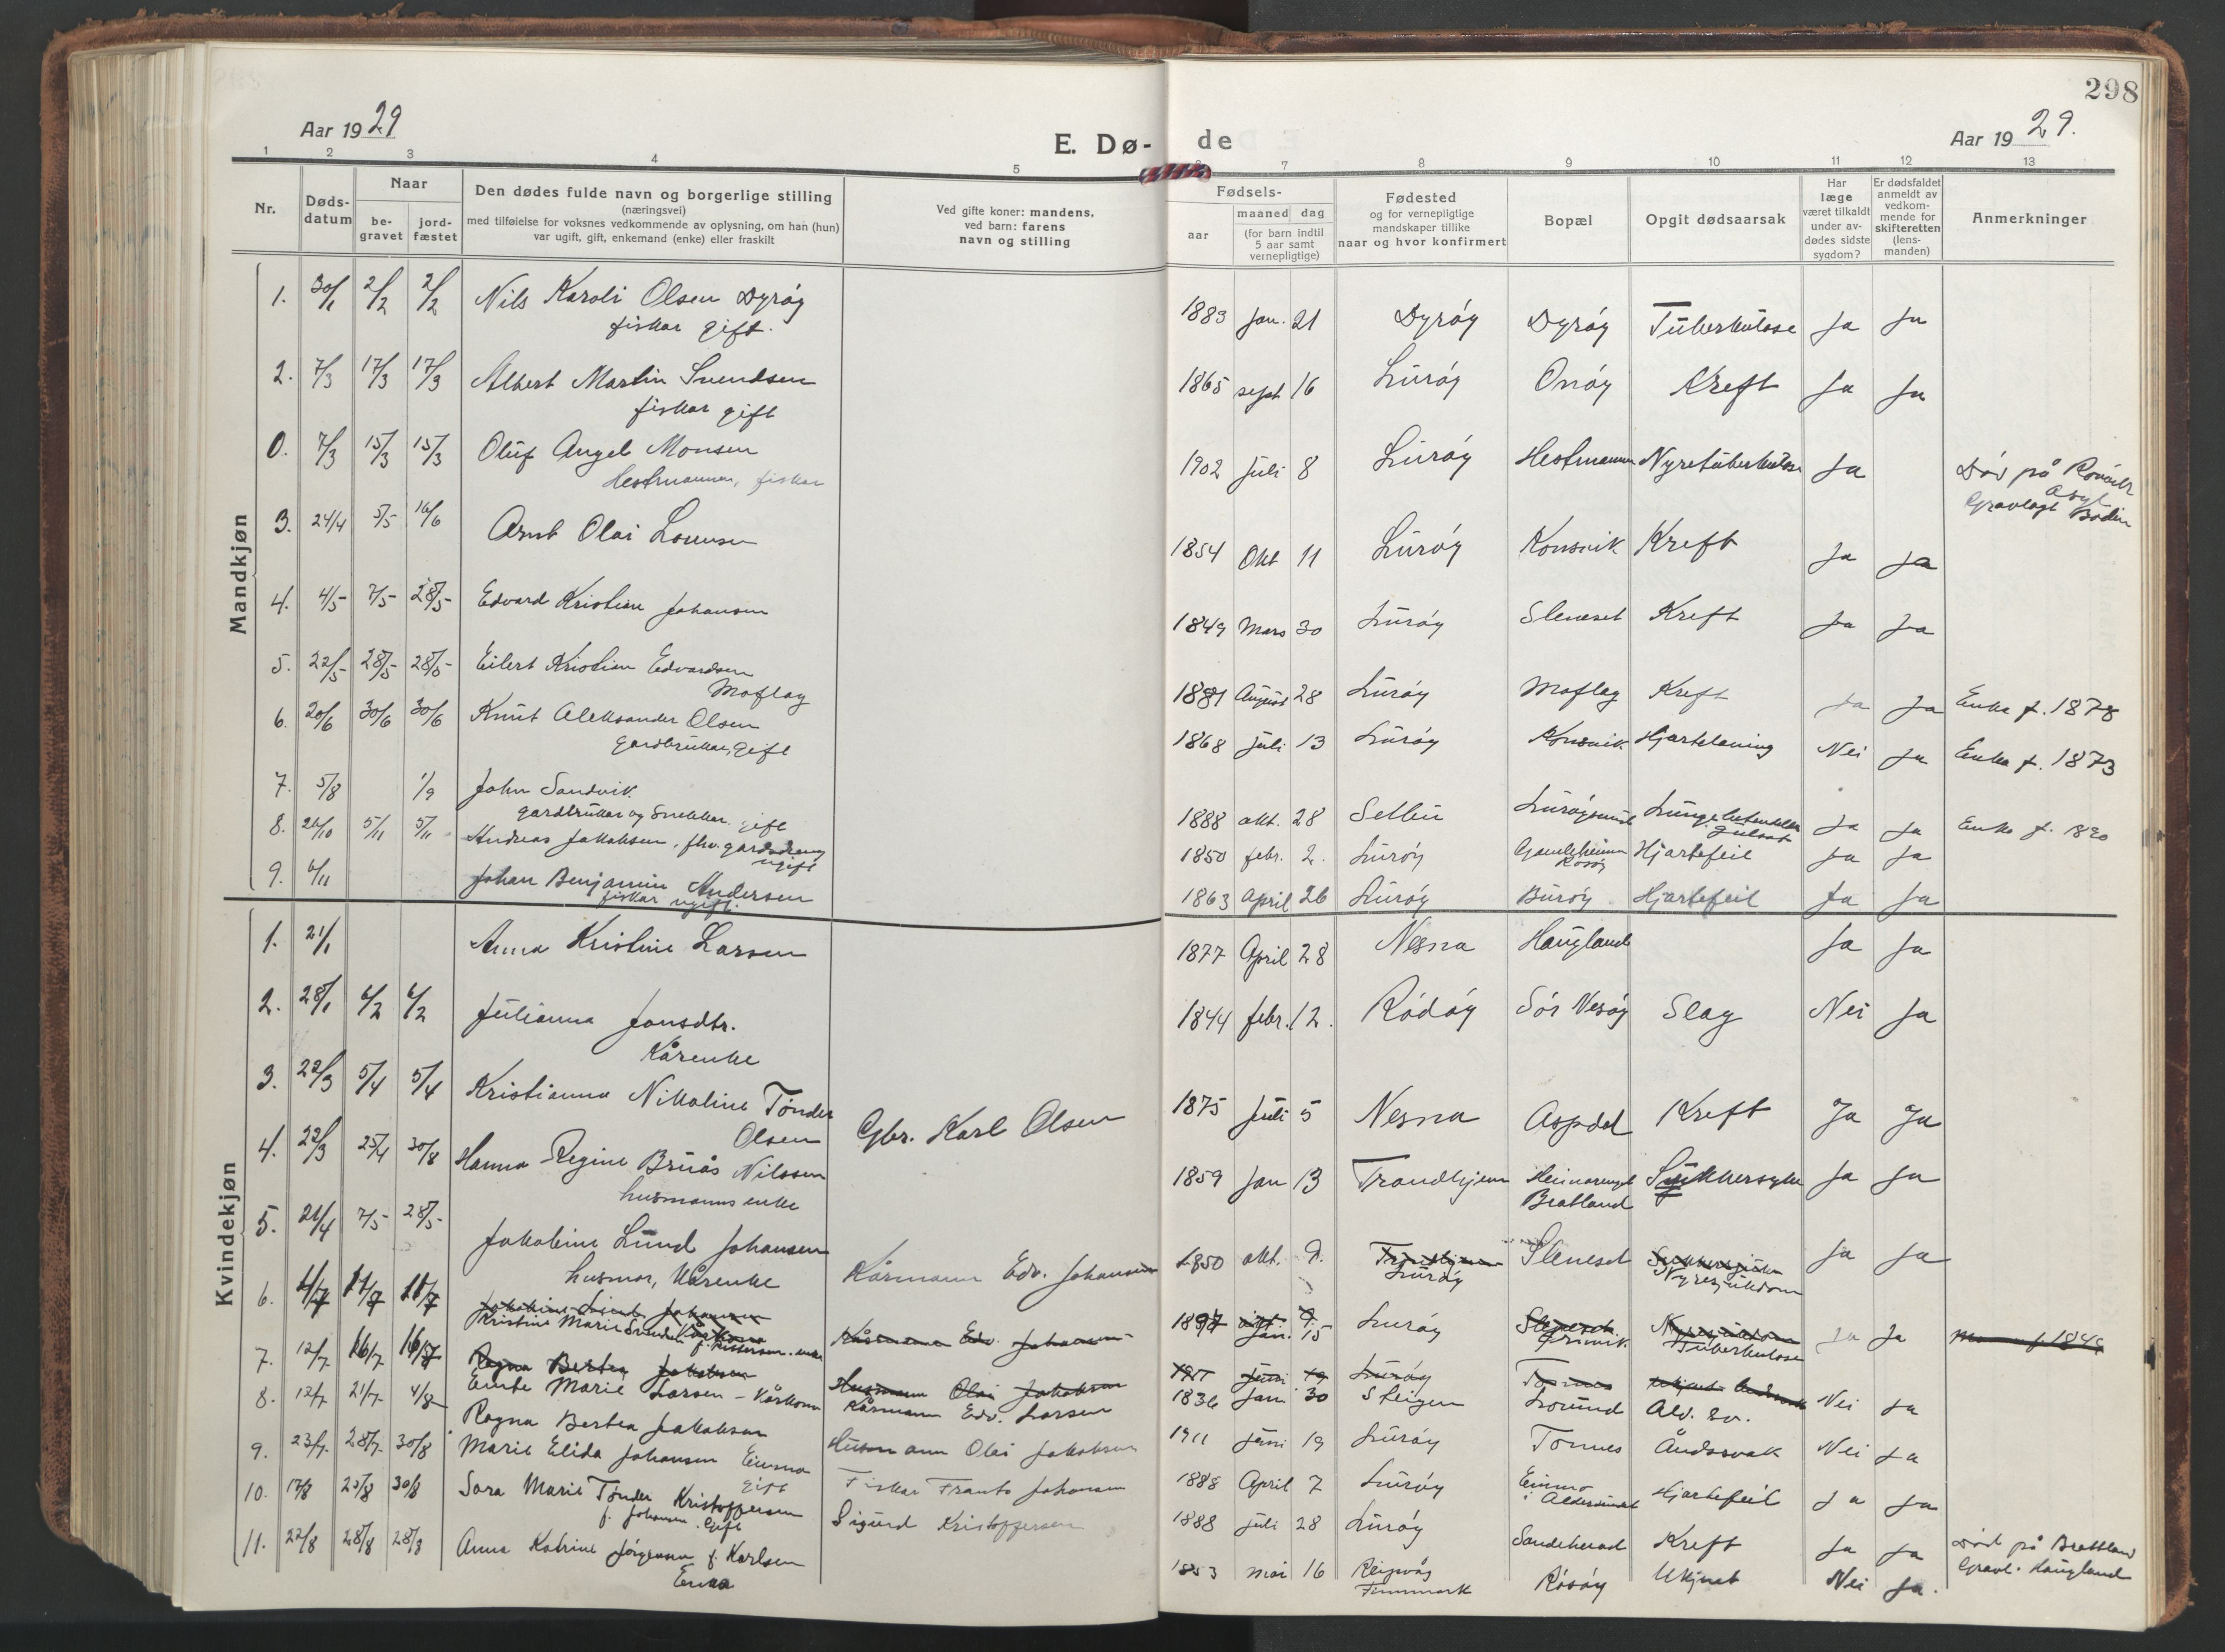 298
Aar 1929
E. Dø-
de
Aar 1929.
1 2 3 4 5 6 7 8 9 10 11 12 13
Nr.
Døds-
datum
Naar
be-
gravet
jord-
fæstet
Den dødes fulde navn og borgerlige stilling
(næringsvei)
med tilføielse for voksnes vedkommende av oplysning, om han (hun)
var ugift, gift, enkemand (enke) eller fraskilt
Ved gifte koner: mandens,
ved barn: farens
navn og stilling
Fødsels-
aar
maaned dag
(for barn indtil
5 aar samt
vernepligtige)
Fødested
og for vernepligtige
mandskaper tillike
naar og hvor konfirmert
Bopæl
Opgit dødsaarsak
Har
læge
været tilkaldt
under av-
dødes sidste
sygdom?
Er dødsfaldet
anmeldt av
vedkom-
mende for
skifteretten
(lens-
manden)
Anmerkninger
Mandkjøn
1. 30/1 2/2 2/2 Nils Karoli Olsen Dyröy
fiskar gift.
1883 jan. 21 Dyröy Dyröy Tuberkulose Ja Ja
2. 7/3 17/3 17/3 Albert Martin Svendsen
fiskar gift
1865 sept 16 Luröy Onöy Kreft Ja Ja
0. 7/3 15/3 15/3 Oluf Angel Monsen
Hestmannen, fiskar
1902 juli 8 Luröy Hestmannen Nyretuberkulose Ja
Död på Rönvik
Asyl
Gravlagt Bodin
3. 24/4 5/5 16/6 Arnt Olai Lorensen
1854 Okt 11 Luröy Konsvik Kreft Ja Ja
4. 4/5 7/5 28/5 Edvard Kristian Johansen
1849 Mars 30 Luröy Sleneset Kreft Ja Ja
5. 22/5 28/5 28/5 Eilert Kristian Edvardsen
Moflag
1881 August 28 Luröy Moflag Kreft Ja Ja Enke f. 1878
6. 20/6 30/6 30/6 Knut Aleksander Olsen
gardbrukar, gift
1868 juli 13 Luröy Konsvik Hjartelaming Nei Ja Enke f. 1873
7. 5/8 1/9 John Sandvik
gardbrukar og Snekkar. gift
1888 okt. 28 Luröysund Ja Ja Enke f. 1890
8. 26/10 5/11 5/11 Andreas Jakobsen, fhv. gardsdreng
ugift
1850 febr. 2. Luröy Gamleheimen
Hjartefeil Ja Ja
9. 6/11 Johan Benjamin Andersen
fiskar ugift.
1863 April 26 Luröy Buröy Hjartefeil Ja Ja
Kvindekjøn
1. 21/1 Anna Kristine Larsen
1877 April 28 Nesna Haugland Ja Ja
2. 28/1 6/2 6/2 Julianna Jonsdtr.
Kårenke
1844 febr. 12. Rödöy Sör Nesöy Slag Nei Ja
3. 22/3 5/4 5/4 Kristianna Nikoline Tönder
Olsen
Gbr. Karl Olsen
1875 Juli 5 Nesna Aspdal Kreft Ja Ja
4. 22/3 25/4 30/8 Hanna Regine Bruås Nilssen
husmanns enke
1859 Jan 13 Trondhjem
Bratland Sukkersyke Ja Ja
5. 21/4 7/5 28/5 Jakobine Lund Johansen
husmor, Kårenke
Kårmann Edv. Johansen
1850 okt. 9. Trondhjem
Luröy
Sleneset Sukkersjuke
Nyresjukdom
Ja Ja
6. 4/7 11/7 11/7 Jakobine Lund Johansen
Kristine Marie
Kårmann Edv. Johansen
Jan. 15 Luröy Sleneset
Nyresjukdom
Tuberkulose
Ja Ja
7. 12/7 16/7 16/7 Ragna Bertea Jakobsen
Husmann Olai Jakobsen
1911 juni 19 Luröy Tonnes
8. 12/7 21/7 4/8 Marie Larsen - Kårkone
Kårmann Edv. Larsen
1836 Jan 30 Steigen Lovund Ald. Nei Ja
Ragna Bertea Jakobsen
Husmann Olai Jakobsen
1911 juni 19 Luröy Tonnes Åndssvak Nei Ja
9. 23/7 28/7 30/8 Marie Elida Johansen
gift
Fiskar Frants Johansen
1888 April 7 Luröy
i Aldersundet
Hjartefeil Ja Ja
10. 17/8 25/8 30/8 Sara Marie Tönder Kristoffersen
f. Johansen. Gift
Sigurd Kristoffersen
1888 juli 28 Luröy Kreft Ja Ja Död på Brattland
Gravl. Haugland
11. 22/8 28/8 28/8 Anna Katrine Jörgensen f. Karlsen
Enke
1853 mai 16
Finnmark
Rösöy Ukjent Nei Ja.